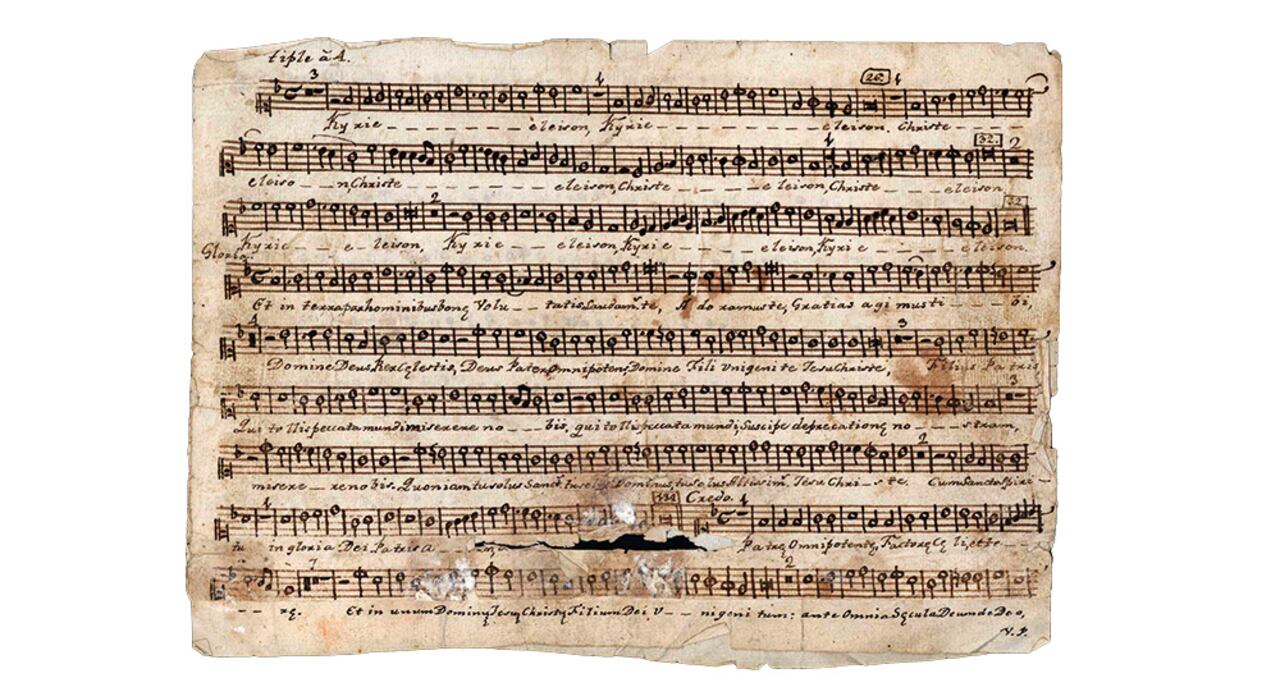 tiple à 4.
3 4 26. 4
Kyrie - - - - - - - - eleison, Kyrie - - - - - - - - eleison. Christe - - -
4 32. 2
eleiso - - n, Christe - - - - - - - eleison, Christe - - - - e leison, Christe - - - - eleison
2 32.
Kyrie - - - e - leison, Kyrie - - - eleison, Kyrie - - - - eleison, Kyrie - - - - eleison.
Gloria.
Et in terra pax hominibus bonę Volu - - tatis Laudam.te, A do ramuste, Gratias agi mus ti - - - bi,
4 3
Domine Deus Rex Cęlestis, Deus Pater Omnipotens Domine Fili Vnigenite Iesu Christe, Filius Patris
3
Qui tollis peccata mundi miserere no - - - bis, qui tollis peccata mundi, Suscipe deprecationę no - - - stram,
2
misere - - re nobis. Quoniam tu solus Sanct. tu solus Dominus, tu solus Altissim. Iesu Chri - - ste. Cum Sancto Spiri -
4 Credo. 4
tu in gloria Dei Patris A - - - Patrę Omnipotentę, Factorę Cę li, et te - - -
7 2
- - rę. Et in unum Dominų Iesų Christų Filium Dei V - - nigeni tum: ante Omnia Sęcula Deum de Deo,
V. P.